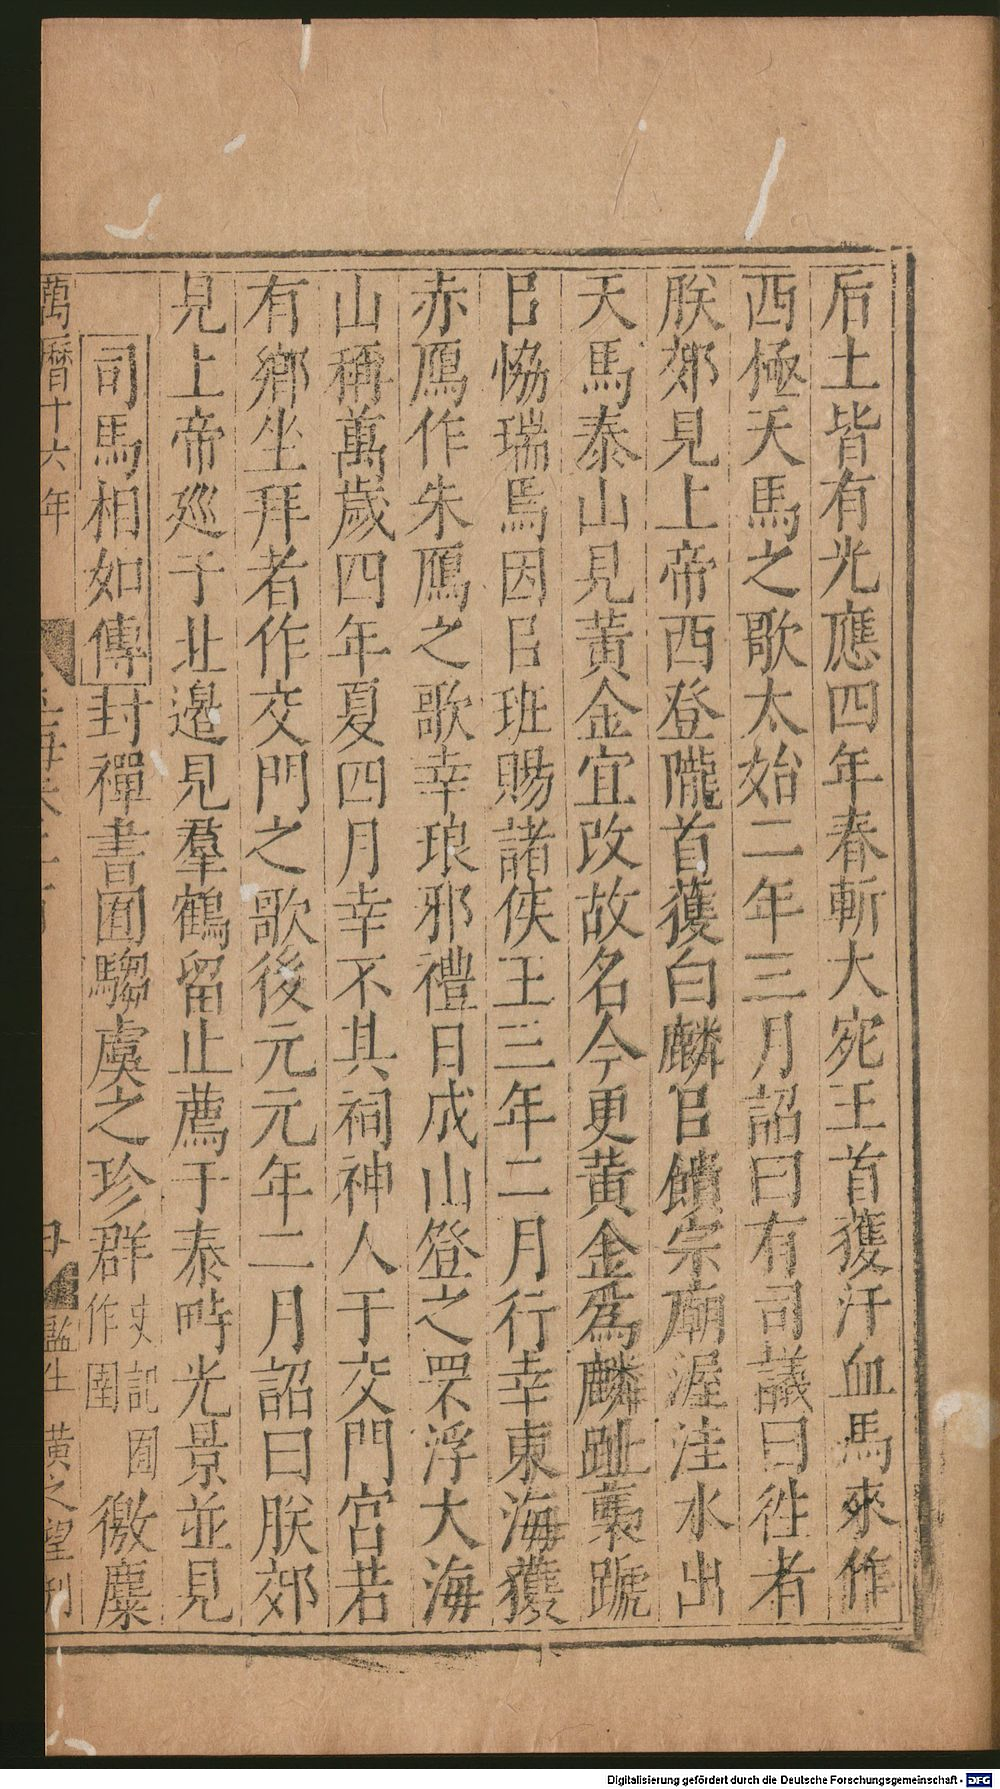 后土皆有光應四年春斬大宛王首獲汗血馬來作
西極天馬之歌太始二年三月詔曰有司議曰徃者
朕郊見上帝西登隴首獲白麟㠯饋宗廟渥洼水出
天馬泰山見黃金宜改故名今更黃金爲麟趾褭蹏
㠯恊瑞焉因㠯班賜諸侯王三年二月行幸東海獲
赤鴈作朱鴈之歌幸琅邪禮日成山登之罘浮大海
山稱萬歲四年夏四月幸不其祠神人于交門宮若
有鄉坐拜者作交門之歌後元元年二月詔曰朕郊
見上帝巡于北邊見羣鶴留止薦于泰畤光景並見
司馬相如傳封禪書囿騶虞之珍群史記囿作圉徼麋
萬曆十六年 監生 黃之望刊
Digitalisierung gefördert durch die Deutsche Forschungsgemeinschaft - DFG